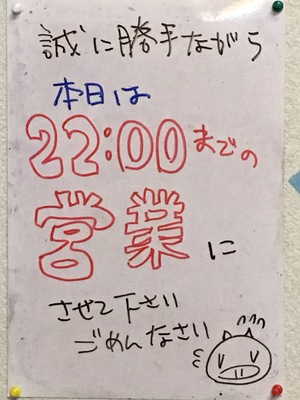 誠に勝手ながら
本日は
22:00までの
営業に
させて下さい
ごめんなさい